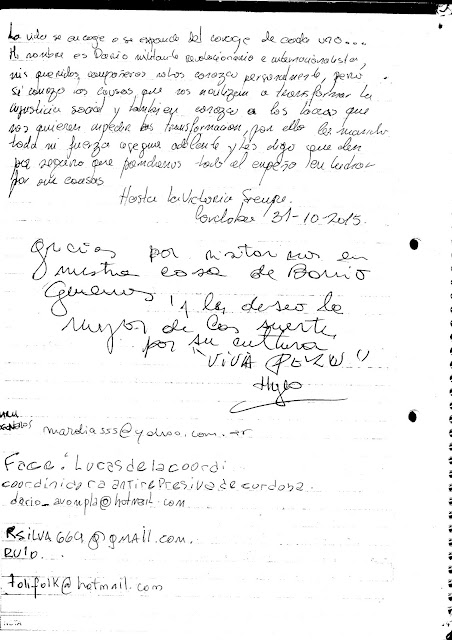 La vida se encoge o se expande del coraje de cada uno...
Mi nombre es Dario militante revolucionario e internacionalista,
mis queridos compañeros no los conozco personalmente, pero
si conozco las causas, que nos movilizan a transformar la
injusticia social y tambien conozco a los que
nos quieren impedir las transformacion, por ello les mando
toda mi fuerza adelante y les digo que den
por seguro que pondremos todo el empeño en luchar
por sus causas
Hasta la Victoria Siempre.
Cordoba 31-10-2015.
gracias por visitarnos en
nuestra casa de Barrio
Guemes y les deseo lo
mejor de las suerte
por su cultura
"VIVA PERU"
Hugo
mardiasss@yahoo.com.ar
Face: Lucas de la coordi
coordinidora antirepresiva de cordoba
dario_avompla@hotmail.com
Rsilva664@gmail.com.
RULO...
tolifolk@hotmail.com